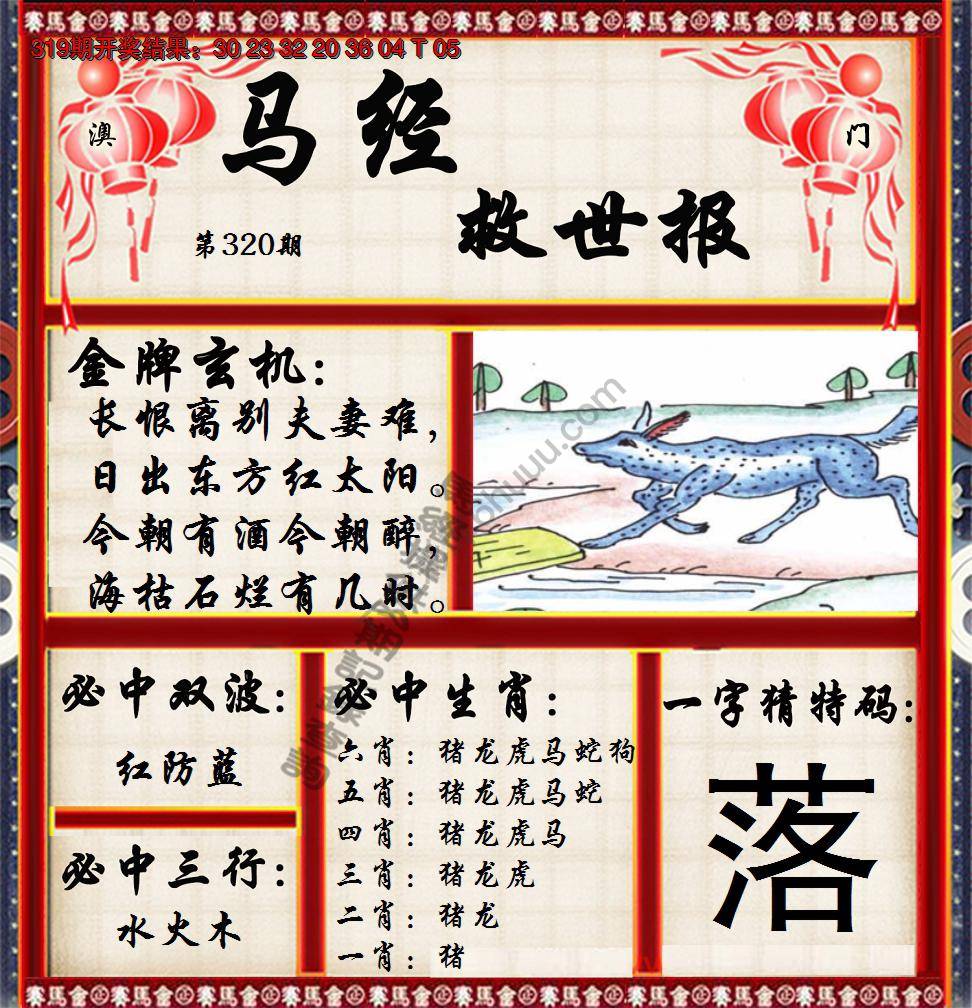 319期开奖结果：30 23 32 20 36 04 T 05
澳
门
马经
救世报
第320期
金牌玄机：
长恨离别夫妻难，
日出东方红太阳。
今朝有酒今朝醉，
海枯石烂有几时。
必中双波：
红防蓝
必中三行：
水火木
必中生肖：
六肖：猪龙虎马蛇狗
五肖：猪龙虎马蛇
四肖：猪龙虎马
三肖：猪龙虎
二肖：猪龙
一肖：猪
一字猜特码：
落